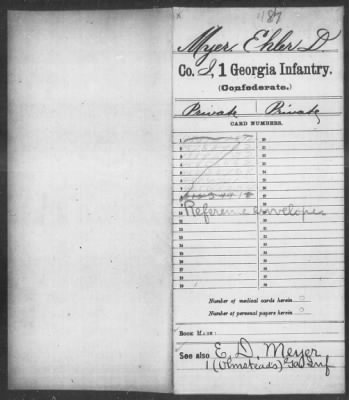 187
Myer, Ehler D.
Co. I, 1 Georgia Infantry.
(Confederate.)
Private Private
CARD NUMBERS.
1
2
3
4
5
6
7
8
9
10
11
12
13
14
15
16
17
18
19
20
21
22
23
24
25
26
27
28
29
30
31
32
33
34
35
36
Reference envelope
Number of medical cards herein 0
Number of personal papers herein 0
BOOK MARK:
See also E. D. Meyer
1 (Olmstead's) Ga Inf